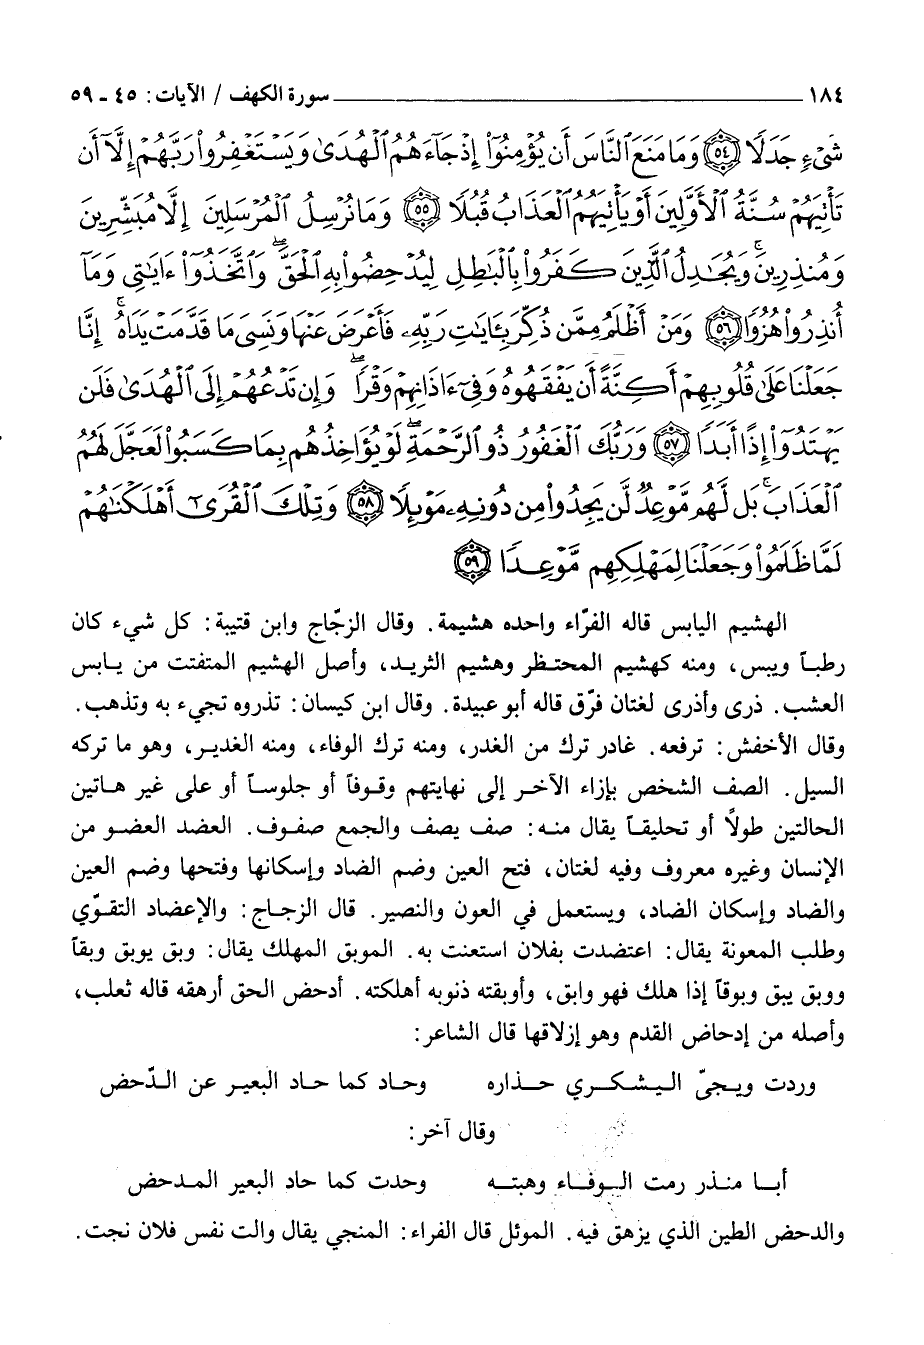 ١٨٤ سورة الكهف / الآيات: ٤٥ - ٥٩
شَىْءٍ جَدَلًا ﴿٥٤﴾ وَمَا مَنَعَ ٱلنَّاسَ أَن يُؤْمِنُوٓا۟ إِذْ جَآءَهُمُ ٱلْهُدَىٰ وَيَسْتَغْفِرُوا۟ رَبَّهُمْ إِلَّآ أَن
تَأْتِيَهُمْ سُنَّةُ ٱلْأَوَّلِينَ أَوْ يَأْتِيَهُمُ ٱلْعَذَابُ قُبُلًا ﴿٥٥﴾ وَمَا نُرْسِلُ ٱلْمُرْسَلِينَ إِلَّا مُبَشِّرِينَ
وَمُنذِرِينَ ۚ وَيُجَٰدِلُ ٱلَّذِينَ كَفَرُوا۟ بِٱلْبَٰطِلِ لِيُدْحِضُوا۟ بِهِ ٱلْحَقَّ ۖ وَٱتَّخَذُوٓا۟ ءَايَٰتِى وَمَآ
أُنذِرُوا۟ هُزُوًا ﴿٥٦﴾ وَمَنْ أَظْلَمُ مِمَّن ذُكِّرَ بِـَٔايَٰتِ رَبِّهِۦ فَأَعْرَضَ عَنْهَا وَنَسِىَ مَا قَدَّمَتْ يَدَاهُ ۚ إِنَّا
جَعَلْنَا عَلَىٰ قُلُوبِهِمْ أَكِنَّةً أَن يَفْقَهُوهُ وَفِىٓ ءَاذَانِهِمْ وَقْرًا ۖ وَإِن تَدْعُهُمْ إِلَى ٱلْهُدَىٰ فَلَن
يَهْتَدُوٓا۟ إِذًا أَبَدًا ﴿٥٧﴾ وَرَبُّكَ ٱلْغَفُورُ ذُو ٱلرَّحْمَةِ ۖ لَوْ يُؤَاخِذُهُم بِمَا كَسَبُوا۟ لَعَجَّلَ لَهُمُ
ٱلْعَذَابَ ۚ بَل لَّهُم مَّوْعِدٌ لَّن يَجِدُوا۟ مِن دُونِهِۦ مَوْئِلًا ﴿٥٨﴾ وَتِلْكَ ٱلْقُرَىٰٓ أَهْلَكْنَٰهُمْ
لَمَّا ظَلَمُوا۟ وَجَعَلْنَا لِمَهْلِكِهِم مَّوْعِدًا ﴿٥٩﴾
الهشيم اليابس قاله الفرّاء واحده هشيمة. وقال الزجّاج وابن قتيبة: كل شيء كان
رطباً ويبس، ومنه كهشيم المحتظر وهشيم الثريد، وأصل الهشيم المتفتت من يابس
العشب. ذرى وأذرى لغتان فرّق قاله أبو عبيدة. وقال ابن كيسان: تذروه تجيء به وتذهب.
وقال الأخفش: ترفعه. غادر ترك من الغدر، ومنه ترك الوفاء، ومنه الغدير، وهو ما تركه
السيل. الصف الشخص بإزاء الآخر إلى نهايتهم وقوفاً أو جلوساً أو على غير هاتين
الحالتين طولاً أو تحليقاً يقال منه: صف يصف والجمع صفوف. العضد العضو من
الإنسان وغيره معروف وفيه لغتان، فتح العين وضم الضاد وإسكانها وفتحها وضم العين
والضاد وإسكان الضاد، ويستعمل في العون والنصير. قال الزجاج: والإعضاد التقوّي
وطلب المعونة يقال: اعتضدت بفلان استعنت به. الموبق المهلك يقال: وبق يوبق وبقاً
ووبق يبق وبوقاً إذا هلك فهو وابق، وأوبقته ذنوبه أهلكته. أدحض الحق أرهقه قاله ثعلب،
وأصله من إدحاض القدم وهو إزلاقها قال الشاعر:
وردت ويجيّ اليشكري حذاره وحاد كما حاد البعير عن الدّحض
وقال آخر:
أبا منذر رمت الوفاء وهبته وحدت كما حاد البعير المدحض
والدحض الطين الذي يزهق فيه. الموئل قال الفراء: المنجي يقال والت نفس فلان نجت.